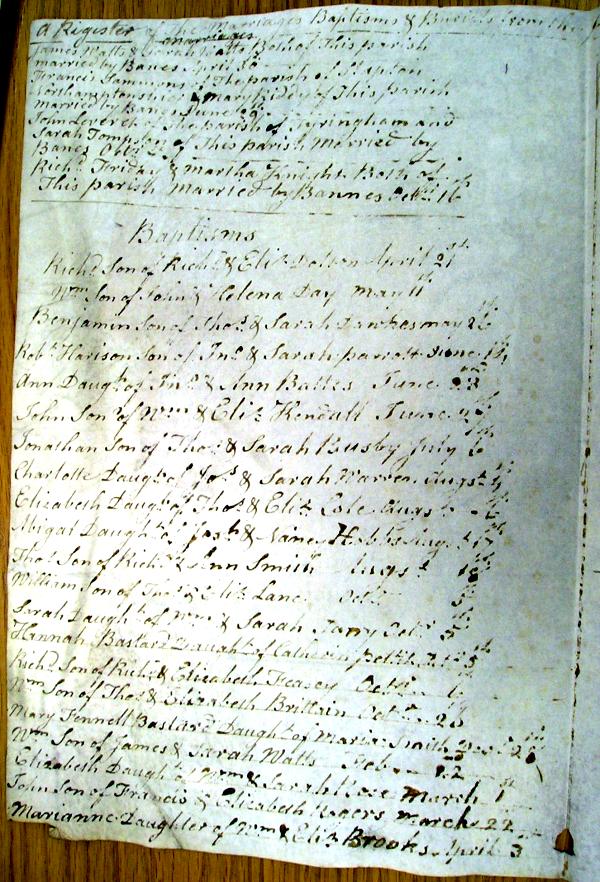 A Register of the Marriages Baptisms & Burials from the
James Watts & Sarah Watts Both of This parish
married by Banes April 30
Francis Gammons of The parish of Slapton
Northamptonshire & Mary Kiddy of This parish
married by Banes June
John Leveret The parish of Tyringham and
Sarah Tomps of This parish Married by
Banes Octr. 2
Richd. Friday & Martha Knight Both of
This parish Married by Bannes Octbr. 16
Baptisms
Richd. Son of Richd. & Eliz Dolton April 21st
Wm Son of John & Helena Day may 11th
Benjamin Son of Thos. & Sarah Dawkes may 26th
Robt. Harison Son of Jno. & Sarah parrott June 14
Ann Daught. of Jno. & Ann Battes June 23
John Son of Wm & Eliz Kendall June
Jonathan Son of Thos. & Sarah Busby July 6th
Charlotte Daught. of Jos. & Sarah Warren Augst.
Elizabeth Daught. of Thos. & Eliz Cole Augst.
Abigal Daught. of Josh. & Jane Hobbs Augst. 17th
Thos. Son of Richd. & Ann Smith Augst.
William Son of & Eliz Lane Octbr.
Sarah Daught. of Wm & Sarah Octbr. 5
Hannah Bastard Daught. of Catherin
Richd. Son of Richd. & Elizabeth Feasey Octbr.
Wm Son of Thos. & Elizabeth Brittain Octbr. 26
Mary Fennell Bastard Daught. of Maria Smith 28
Wm Son of James & Sarah Watts Feb 22
Elizabeth Daught. of Wm & Sarah Rose March 1st
John Son of Francis & Elizabeth Rogers March 22
Marianne Daughter of Wm & Eliz Brooks April 3